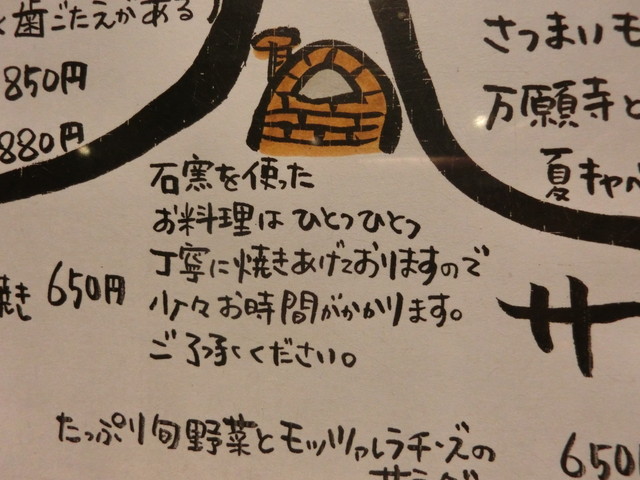 歯ごたえがある)
850円
880円
さつまいも
万願寺と
夏キャベ
石窯を使った
お料理は ひとつひとつ
丁寧に焼きあげておりますので
少々お時間がかかります。
ご了承ください。
焼き 650円
サ
たっぷり旬野菜とモッツァレラチーズの
サラダ
650円